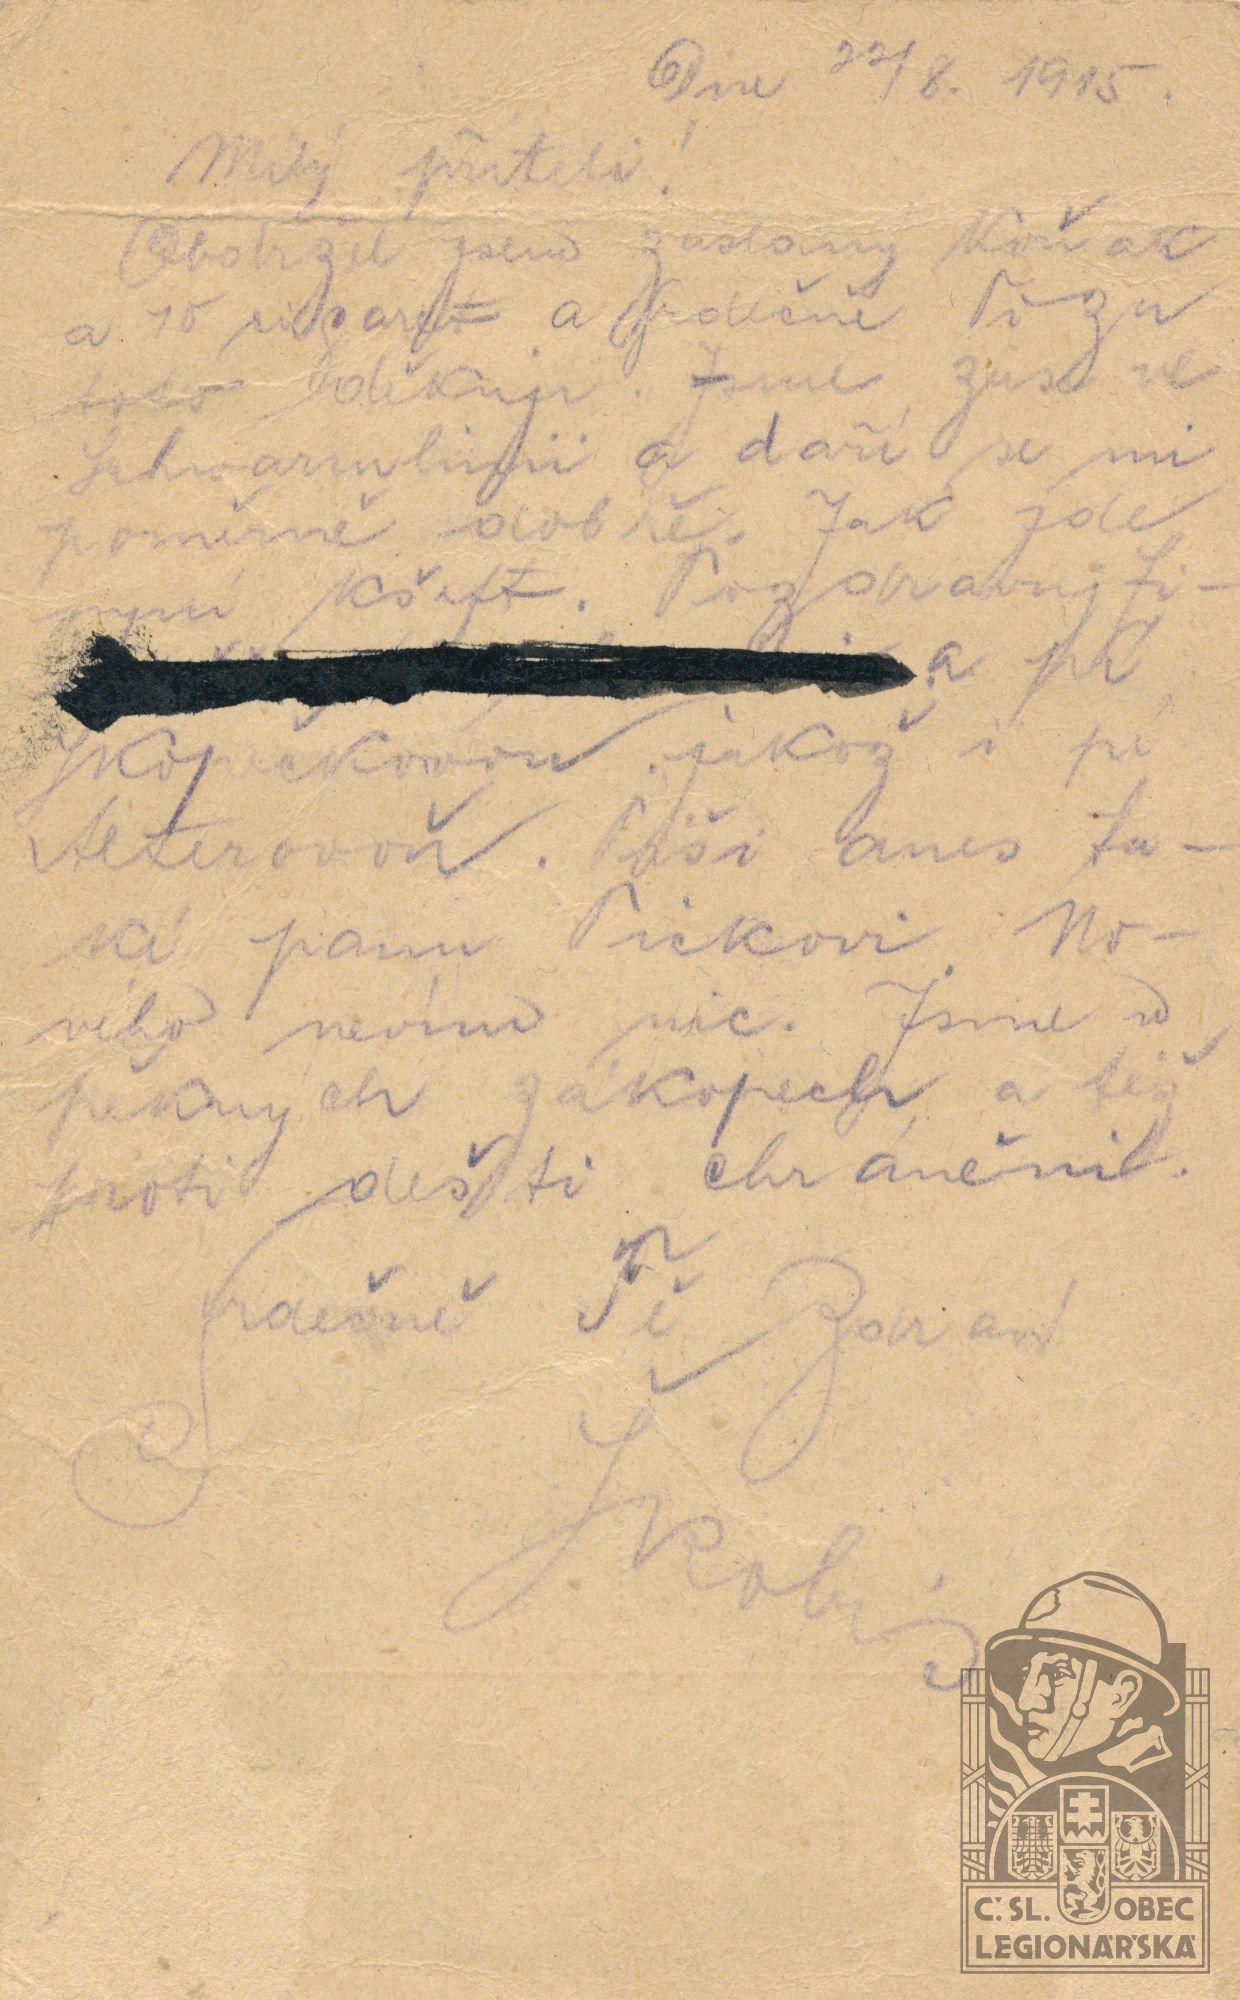 Dne 22/8. 1915.
Milý příteli!
Obdržel jsem zaslaný Koňak
a 10 cigaret a srdečně Ti zu
toto děkuji. Jsme zas ve
Schwarmlinii a daří se mi
poměrně dobře. Jak jde
nyní kšeft. Pozdravuj
a pí
Skopečkovou jakož i pí
Alterovou. Píši dnes ta-
ké panu Pickovi. No-
vého nevím nic. Jsme v
pěkných zákopech a též
proti dešti chráněni.
Srdečně Tě Zdraví
C.SL. OBEC
LEGIONÁŘSKÁ